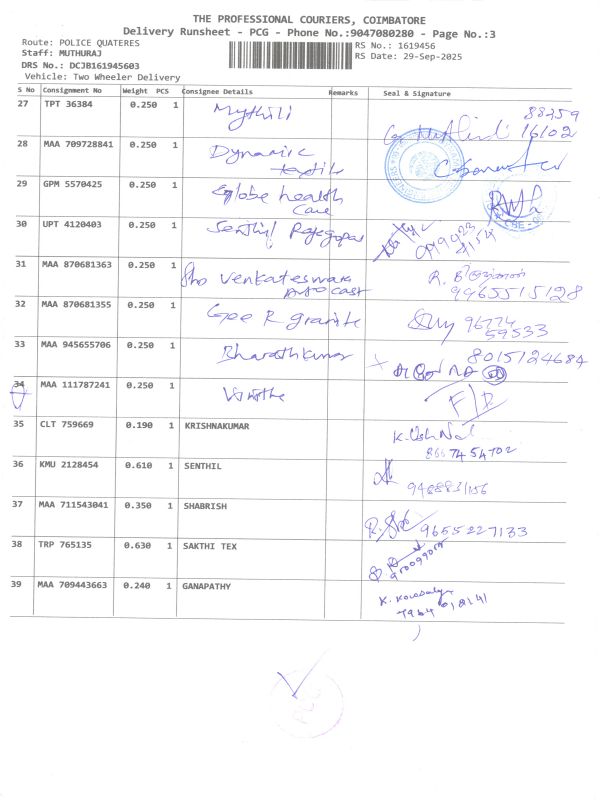 THE PROFESSIONAL COURIERS, COIMBATORE
Delivery Runsheet - PCG - Phone No.:9047080280 - Page No.:3
Route: POLICE QUATERES
Staff: MUTHURAJ
DRS No.: DCJB161945603
Vehicle: Two Wheeler Delivery
RS No.: 1619456
RS Date: 29-Sep-2025
S No Consignment No Weight PCS Consignee Details Remarks Seal & Signature
27 TPT 36384 0.250 1 Mythili 88759
16102
28 MAA 709728841 0.250 1 Dynamic
textile
29 GPM 5570425 0.250 1 Globe health
Care
30 UPT 4120403 0.250 1 Senthil Rajagopal
31 MAA 870681363 0.250 1 Sho Venkateswara
Auto cast
R.
9965515128
32 MAA 870681355 0.250 1 Gee R granite 96774
59533
33 MAA 945655706 0.250 1 Bharathkumar 8015124684
34 MAA 111787241 0.250 1 F/D
35 CLT 759669 0.190 1 KRISHNAKUMAR
8667454702
36 KMU 2128454 0.610 1 SENTHIL
37 MAA 711543041 0.350 1 SHABRISH 9655227133
38 TRP 765135 0.630 1 SAKTHI TEX
39 MAA 709443663 0.240 1 GANAPATHY K.